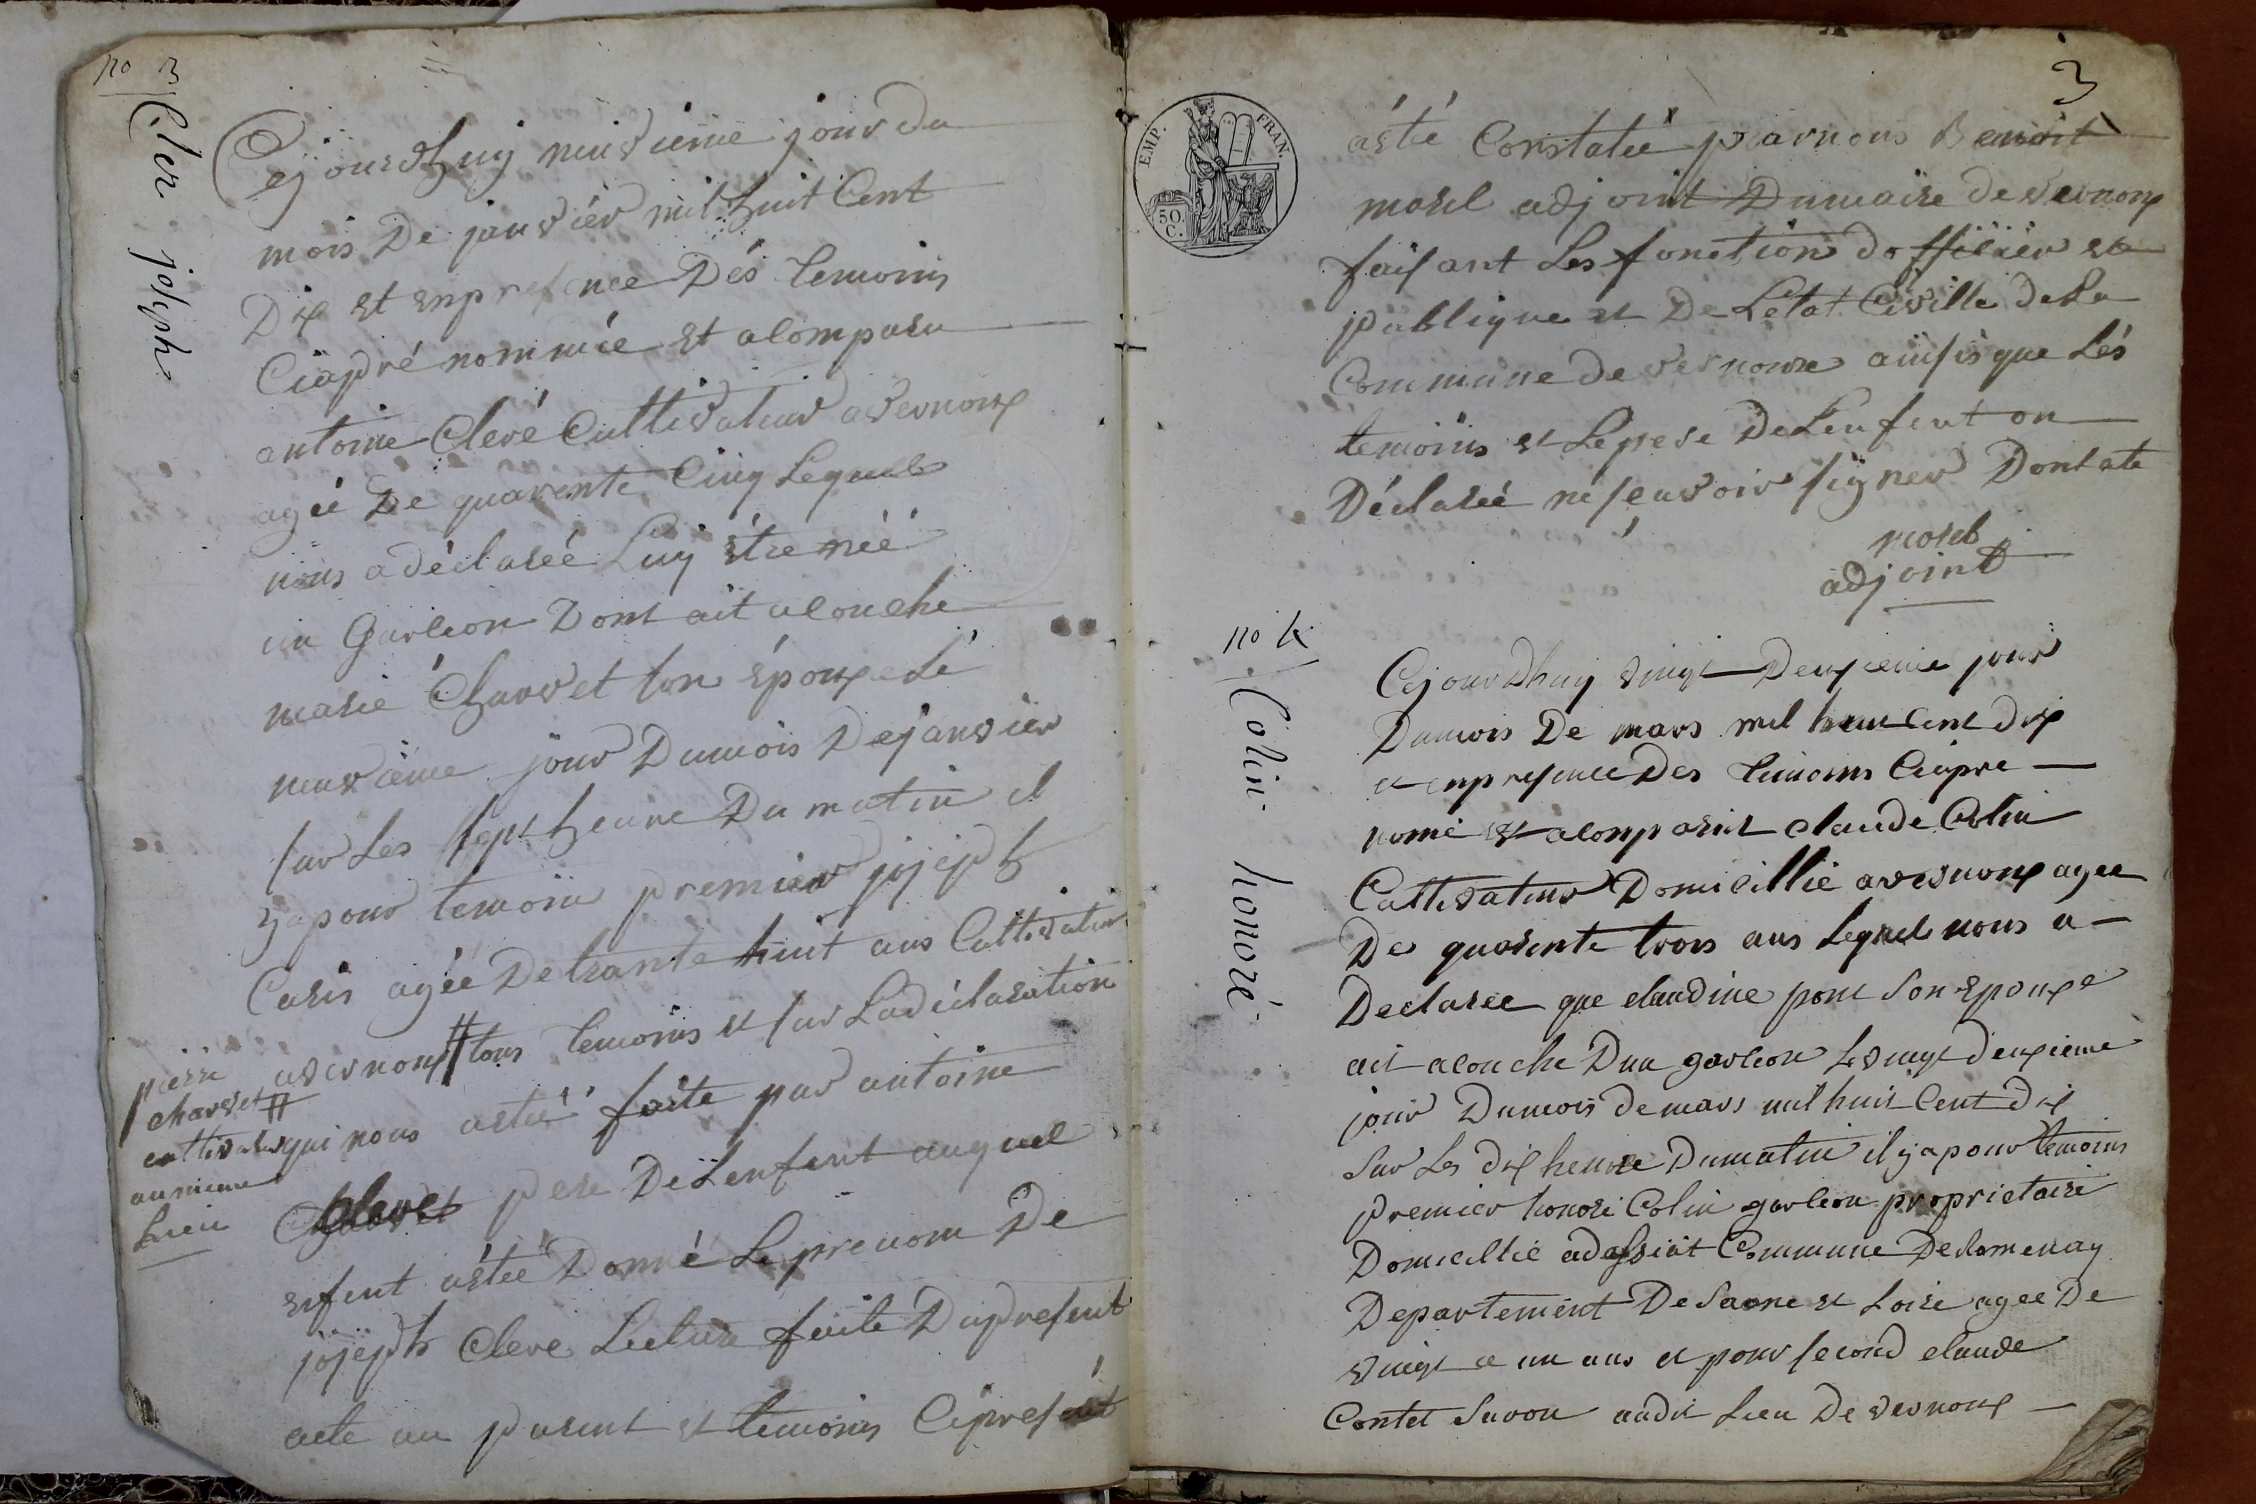 no 3
Cler joseph
Cejourdhuy neuvieme jour du
mois De janvier mil huit Cent
Dix et enpresence Dés temoins
Ciapré nommée et a Comparu
antoine Cleré Cultivateur a vernoux
agée De quarente Cinq Lequel
nous a déclareé Luy étre néé
un Garcon Dont ait acouche
marie Charvet son épouxe Lé
neuvième jour Dumois Dejanvier
sur Les sept heure Du matin il
yapour temoin premier jojeph
Caris agée Detrante huit ans Cultivateur
avernoux # tous temoins et sur Ladéclaration
pierre
charvet #
cultivateur
au meme
Lieu
qui nous aetée faite par antoine
Clere pere DeLenfent auquel
enfent aétée Donné Le prenom De
jojeph Clere Lecture faite Dupresent
acte au parent et temoins Cipresent
3
EMP. FRAN.
50. C.
aété Constateé parnous Benoit
morel adjoint Dumaire de vernoux
faisant Les fonction dofficier
publique et De Letat Civille de La
Commune de vernoux ainsis que Lés
temoins et Lepere DeLenfent on
Déclareé nésavoir signer Dont ate
morel
adjoint
no 4
Colin honoré
Cejourdhuy vingt Deuxieme jour
Dumois De mars mil huit Cent dix
et enpresence Des temoins Ciapre
nomé et acomparut claude Colin
Cultivateur Domicillié avernoux agee
De quarente trois ans Lequel nous a
Declaree que claudine pont son epouxe
ait acouche Dun garcon Le vingt deuxieme
jour Dumois de mars mil huit Cent dix
sur Les dix heure Dumatin il yapour temoins
premier honoré Colin garcon proprietaire
Domicillié Commune De Romenay
Departement De Saone et Loire agee De
vingt e un ans et pour second claude
Contet Savon audit Lieu De vernoux